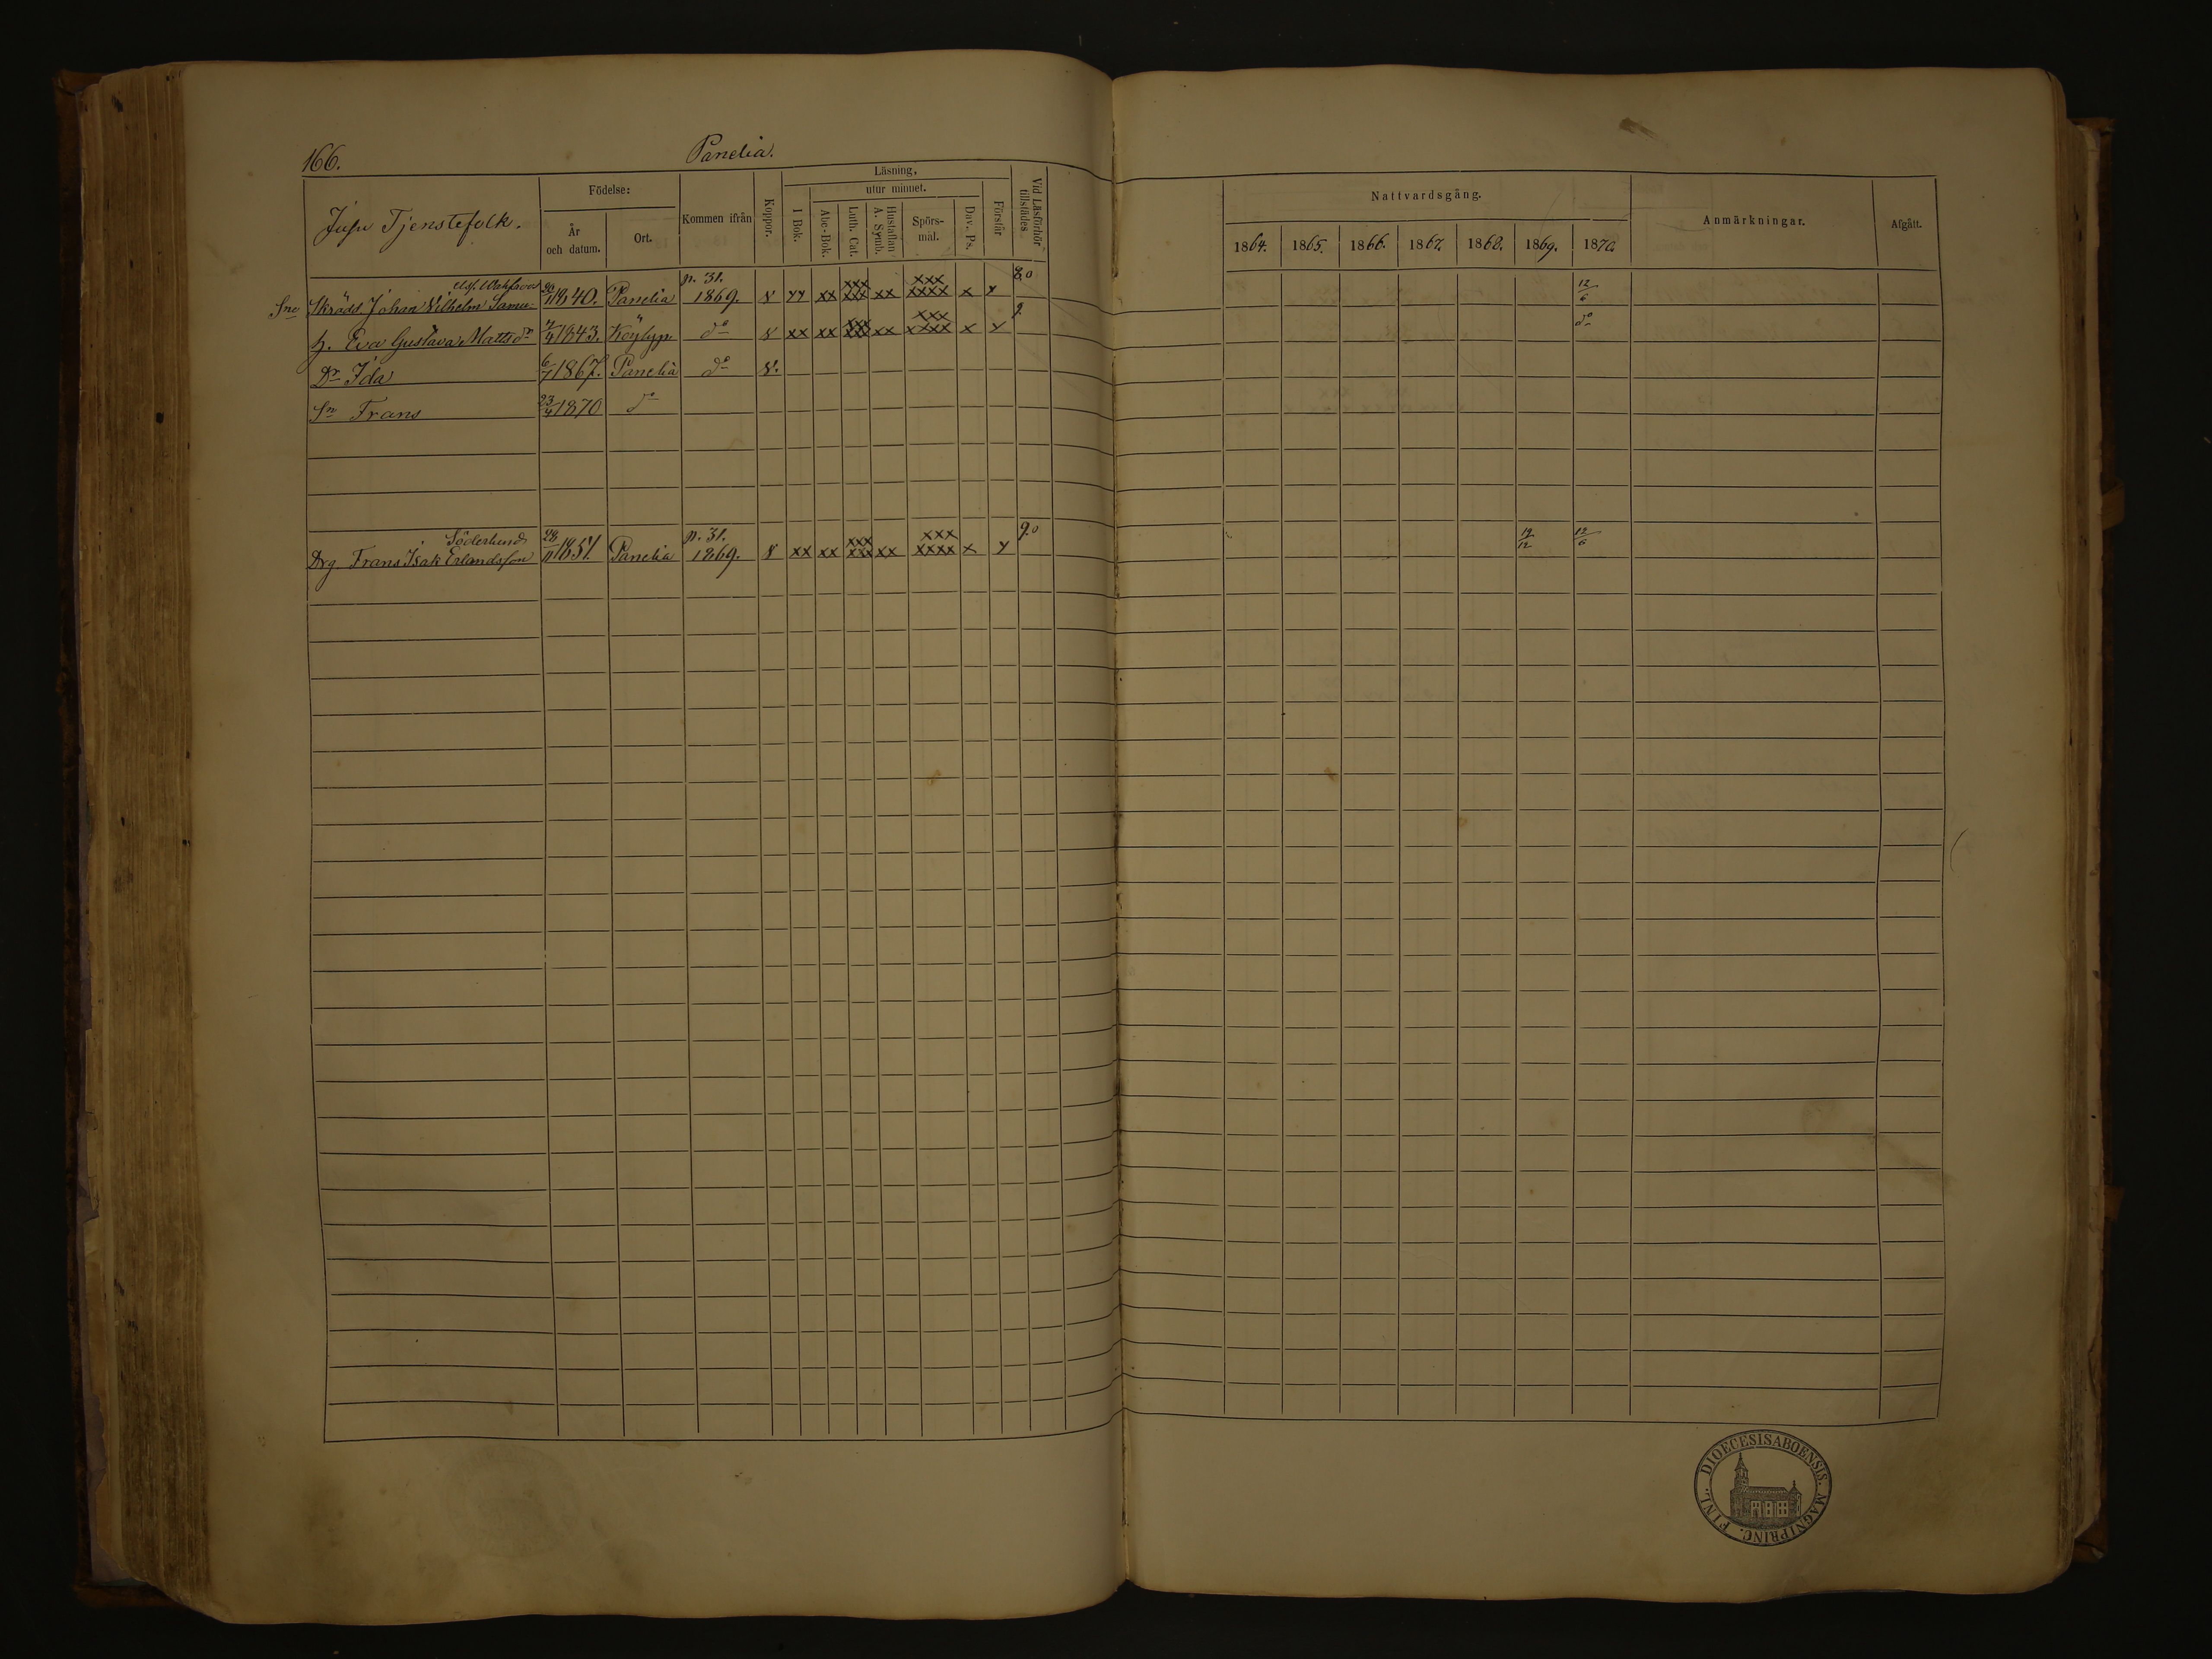 166.
Panelia.
Jusu Tjenstefolk.
Födelse:
År och datum.
Ort.
Kommen ifrån
Koppor.
Läsning,
utur minnet.
I Bok.
Abc-Bok.
Luth. Cat.
Hustaflan A. Symb.
Spörs-mål.
Dav. Ps.
Förstår
Vid Läsförhör tillstädes
Nattvardsgång.
1864. 1865. 1866. 1867. 1868. 1869. 1870.
Anmärkningar.
Afgått.
p. 31.
Skrädd. Johan Vilhelm 1840. Panelia 1869. xx xx xxx xxx xx xxx xxxx x 12/6
h. Eva Gustava Mattsdr 1843. Köyliyp do xx xx xxx xxx xx xxx xxxx x do
Dr Ida 6/7 1867. Panelia do
Sn Frans 23/4 1870 do
Söderlund p. 31.
Drg. Frans Isak Erlandsson 28/11 1851. Panelia 1869. xx xx xxx xxx xx xxx xxxx x 12/6
DIOECESIS ABOENSIS. MAGNI PRINC. FINL.